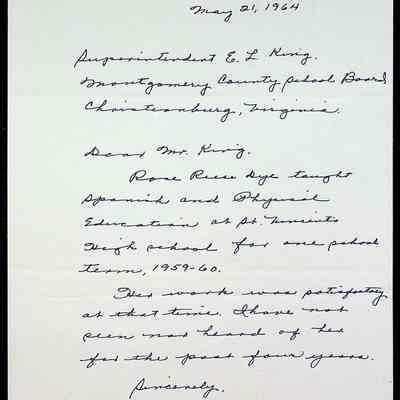 May 21, 1964
Superintendent E. L. King.
Montgomery County School Board
Christiansburg, Virginia.
Dear Mr. King.
Rose Reese Dye taught
Spanish and Physical
Education at St. Vincent's
High school for one school
term, 1959-60.
Her work was satisfactory
at that time. I have not
seen nor heard of her
for the past four years.
Sincerely.